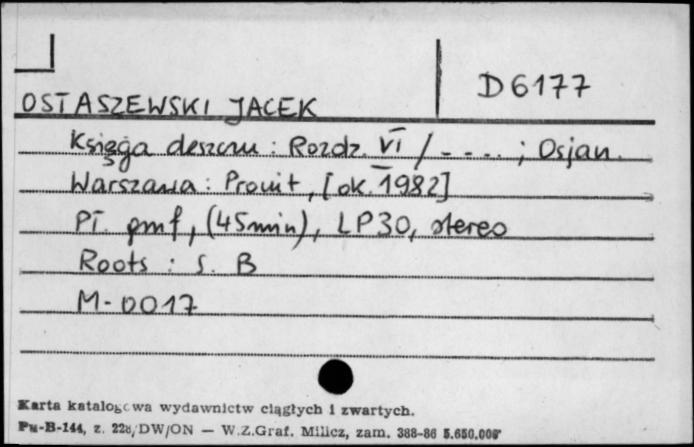 D6177
OSTASZEWSKI JACEK
Księga deszczu : Rozdz. VI / - - - - ; Osjan.
Warszawa : Pronit, [ok. 1982]
Pł. gmf, (45min), LP30, stereo
Roots : S. B
M-0017
Karta katalogowa wydawnictw ciągłych i zwartych.
Pu-B-144, z. 228/DW/ON — W.Z.Graf. Milicz, zam. 388-86 5.650.000